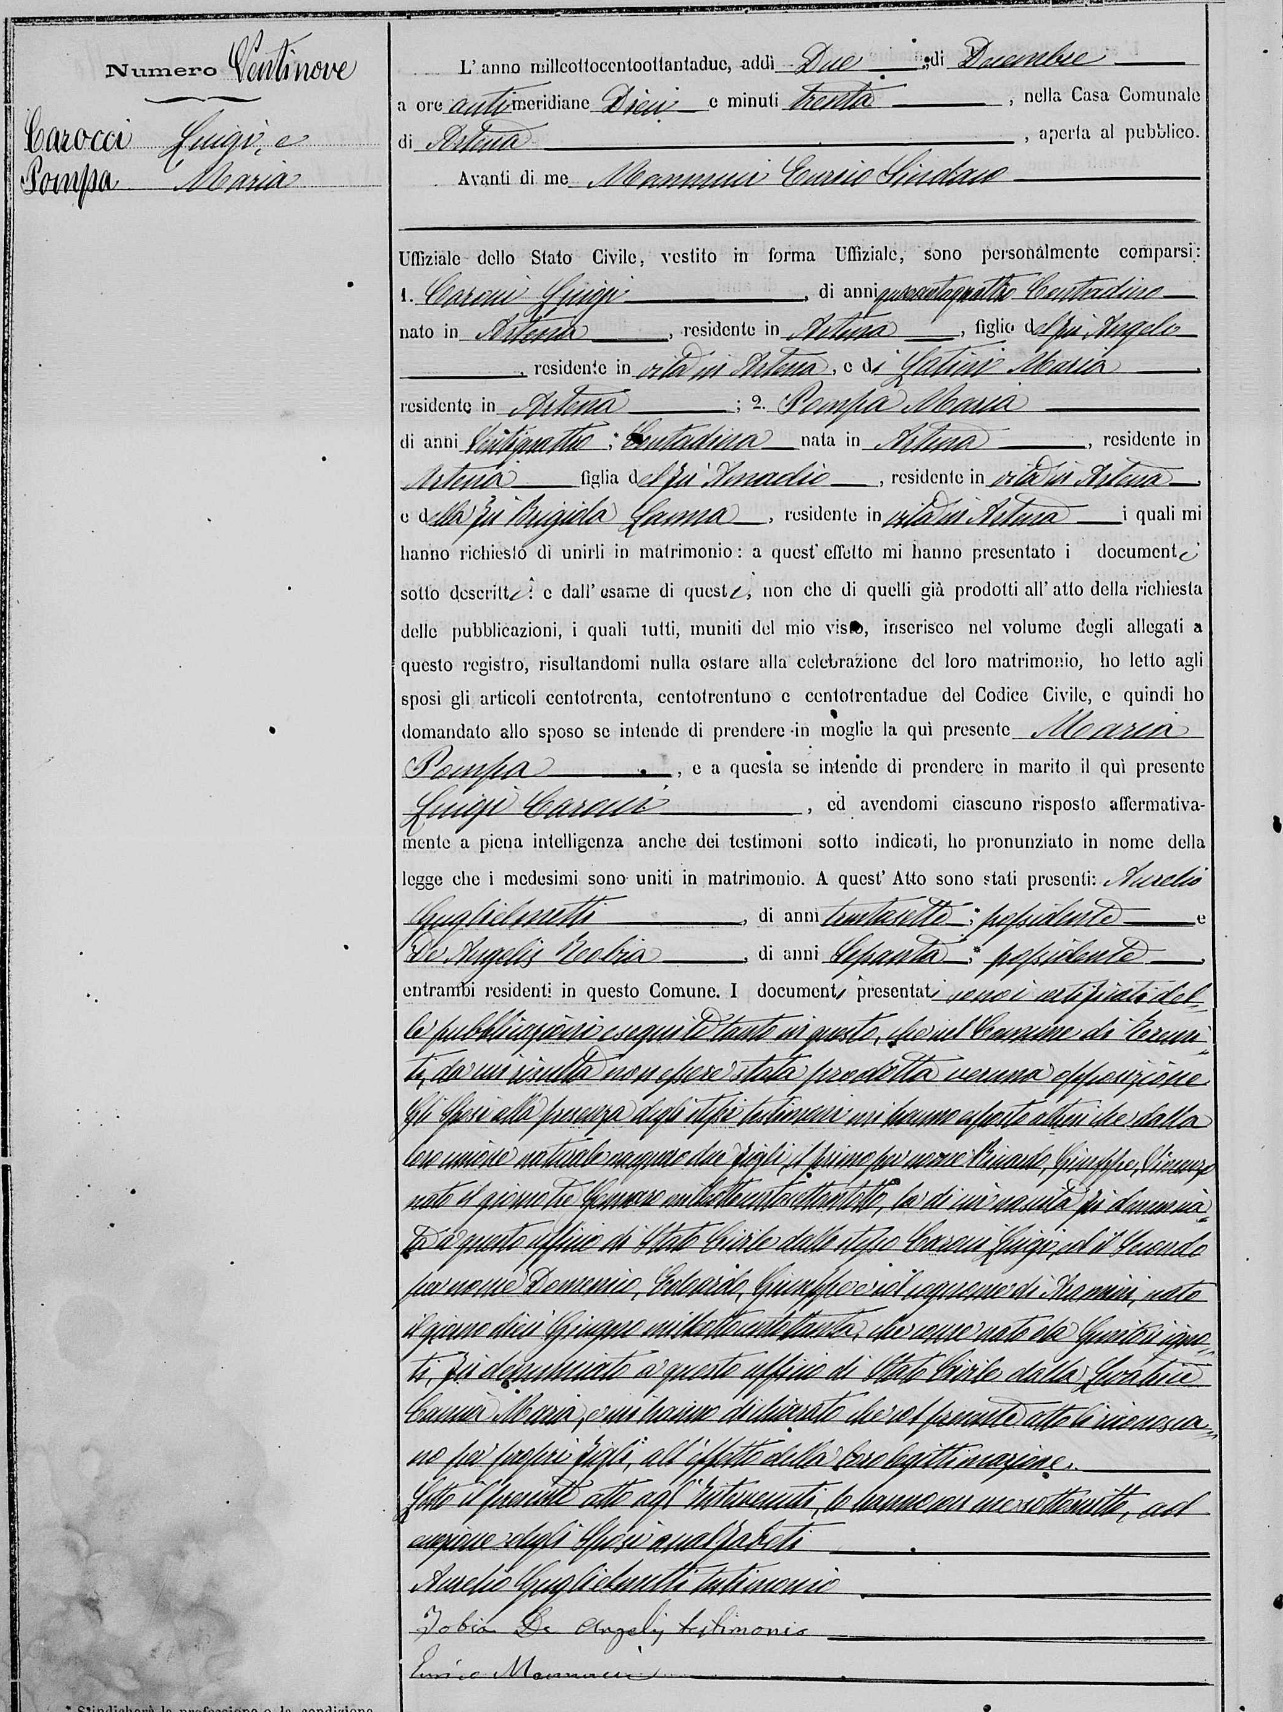 Numero Ventinove
Carocci Luigi, e
Pompa Maria
L'anno milleottocentoottantadue, addì Due di Decembre
a ore antimeridiane Dieci e minuti trenta, nella Casa Comunale
di Artena, aperta al pubblico.
Avanti di me Mannucci Enrico Sindaco
Uffiziale dello Stato Civile, vestito in forma Uffiziale, sono personalmente comparsi:
1. Carocci Luigi, di anni quarantaquattro Contadino
nato in Artena, residente in Artena, figlio del fu Angelo
, residente in vita in Artena, e di Latini Maria
residente in Artena; 2. Pompa Maria
di anni Ventiquattro; Contadina nata in Artena, residente in
Artena figlia del fu Amadio, residente in vita in Artena
e della fu Brigida, residente in vita in Artena i quali mi
hanno richiesto di unirli in matrimonio: a quest'effetto mi hanno presentato i documenti
sotto descritti: e dall'esame di questi, non che di quelli già prodotti all'atto della richiesta
delle pubblicazioni, i quali tutti, muniti del mio visto, inserisco nel volume degli allegati a
questo registro, risultandomi nulla ostare alla celebrazione del loro matrimonio, ho letto agli
sposi gli articoli centotrenta, centotrentuno e centotrentadue del Codice Civile, e quindi ho
domandato allo sposo se intende di prendere in moglie la quì presente Maria
Pompa, e a questa se intende di prendere in marito il quì presente
Luigi Carocci, ed avendomi ciascuno risposto affermativa-
mente a piena intelligenza anche dei testimoni sotto indicati, ho pronunziato in nome della
legge che i medesimi sono uniti in matrimonio. A quest'Atto sono stati presenti: Aurelio
Guglielmetti, di anni trentasette; possidente e
De Angelis Tobia, di anni Sessanta; possidente,
entrambi residenti in questo Comune. I documenti presentati sono i certificati del-
le pubblicazioni eseguite tanto in questo, che nel Comune di
ti, da cui risulta non essere stata prodotta veruna opposizione
Gli Sposi alla presenza degli stessi testimoni mi hanno esposto altresì che dalla
loro unione naturale nacquero due figli, il primo per nome Riccardo, Giuseppe, Vincenzo
nato il giorno tre Gennaro milleottocentosettantotto, la di cui nascita fu denuncia-
ta a questo uffizio di Stato Civile dallo stesso Carocci Luigi, ed il Secondo
per nome Domenico, Edoardo, Giuseppe e col cognome di, nato
il giorno dieci Giugno milleottocentottanta, che come nato da Genitori igno-
ti, fu denunciato a questo uffizio di Stato Civile dalla Levatrice
Maria, e mi hanno dichiarato che col presente atto li riconosca-
no per proprii figli, all'effetto della loro legittimazione.
Letto il presente atto agl'Intervenuti, lo hanno con me sottoscritto, ad
eccezione degli Sposi analfabeti
Aurelio Guglielmetti testimonio
Tobia De Angelis testimonio
Enrico Mannucci
* S'indicherà la professione o la condizione